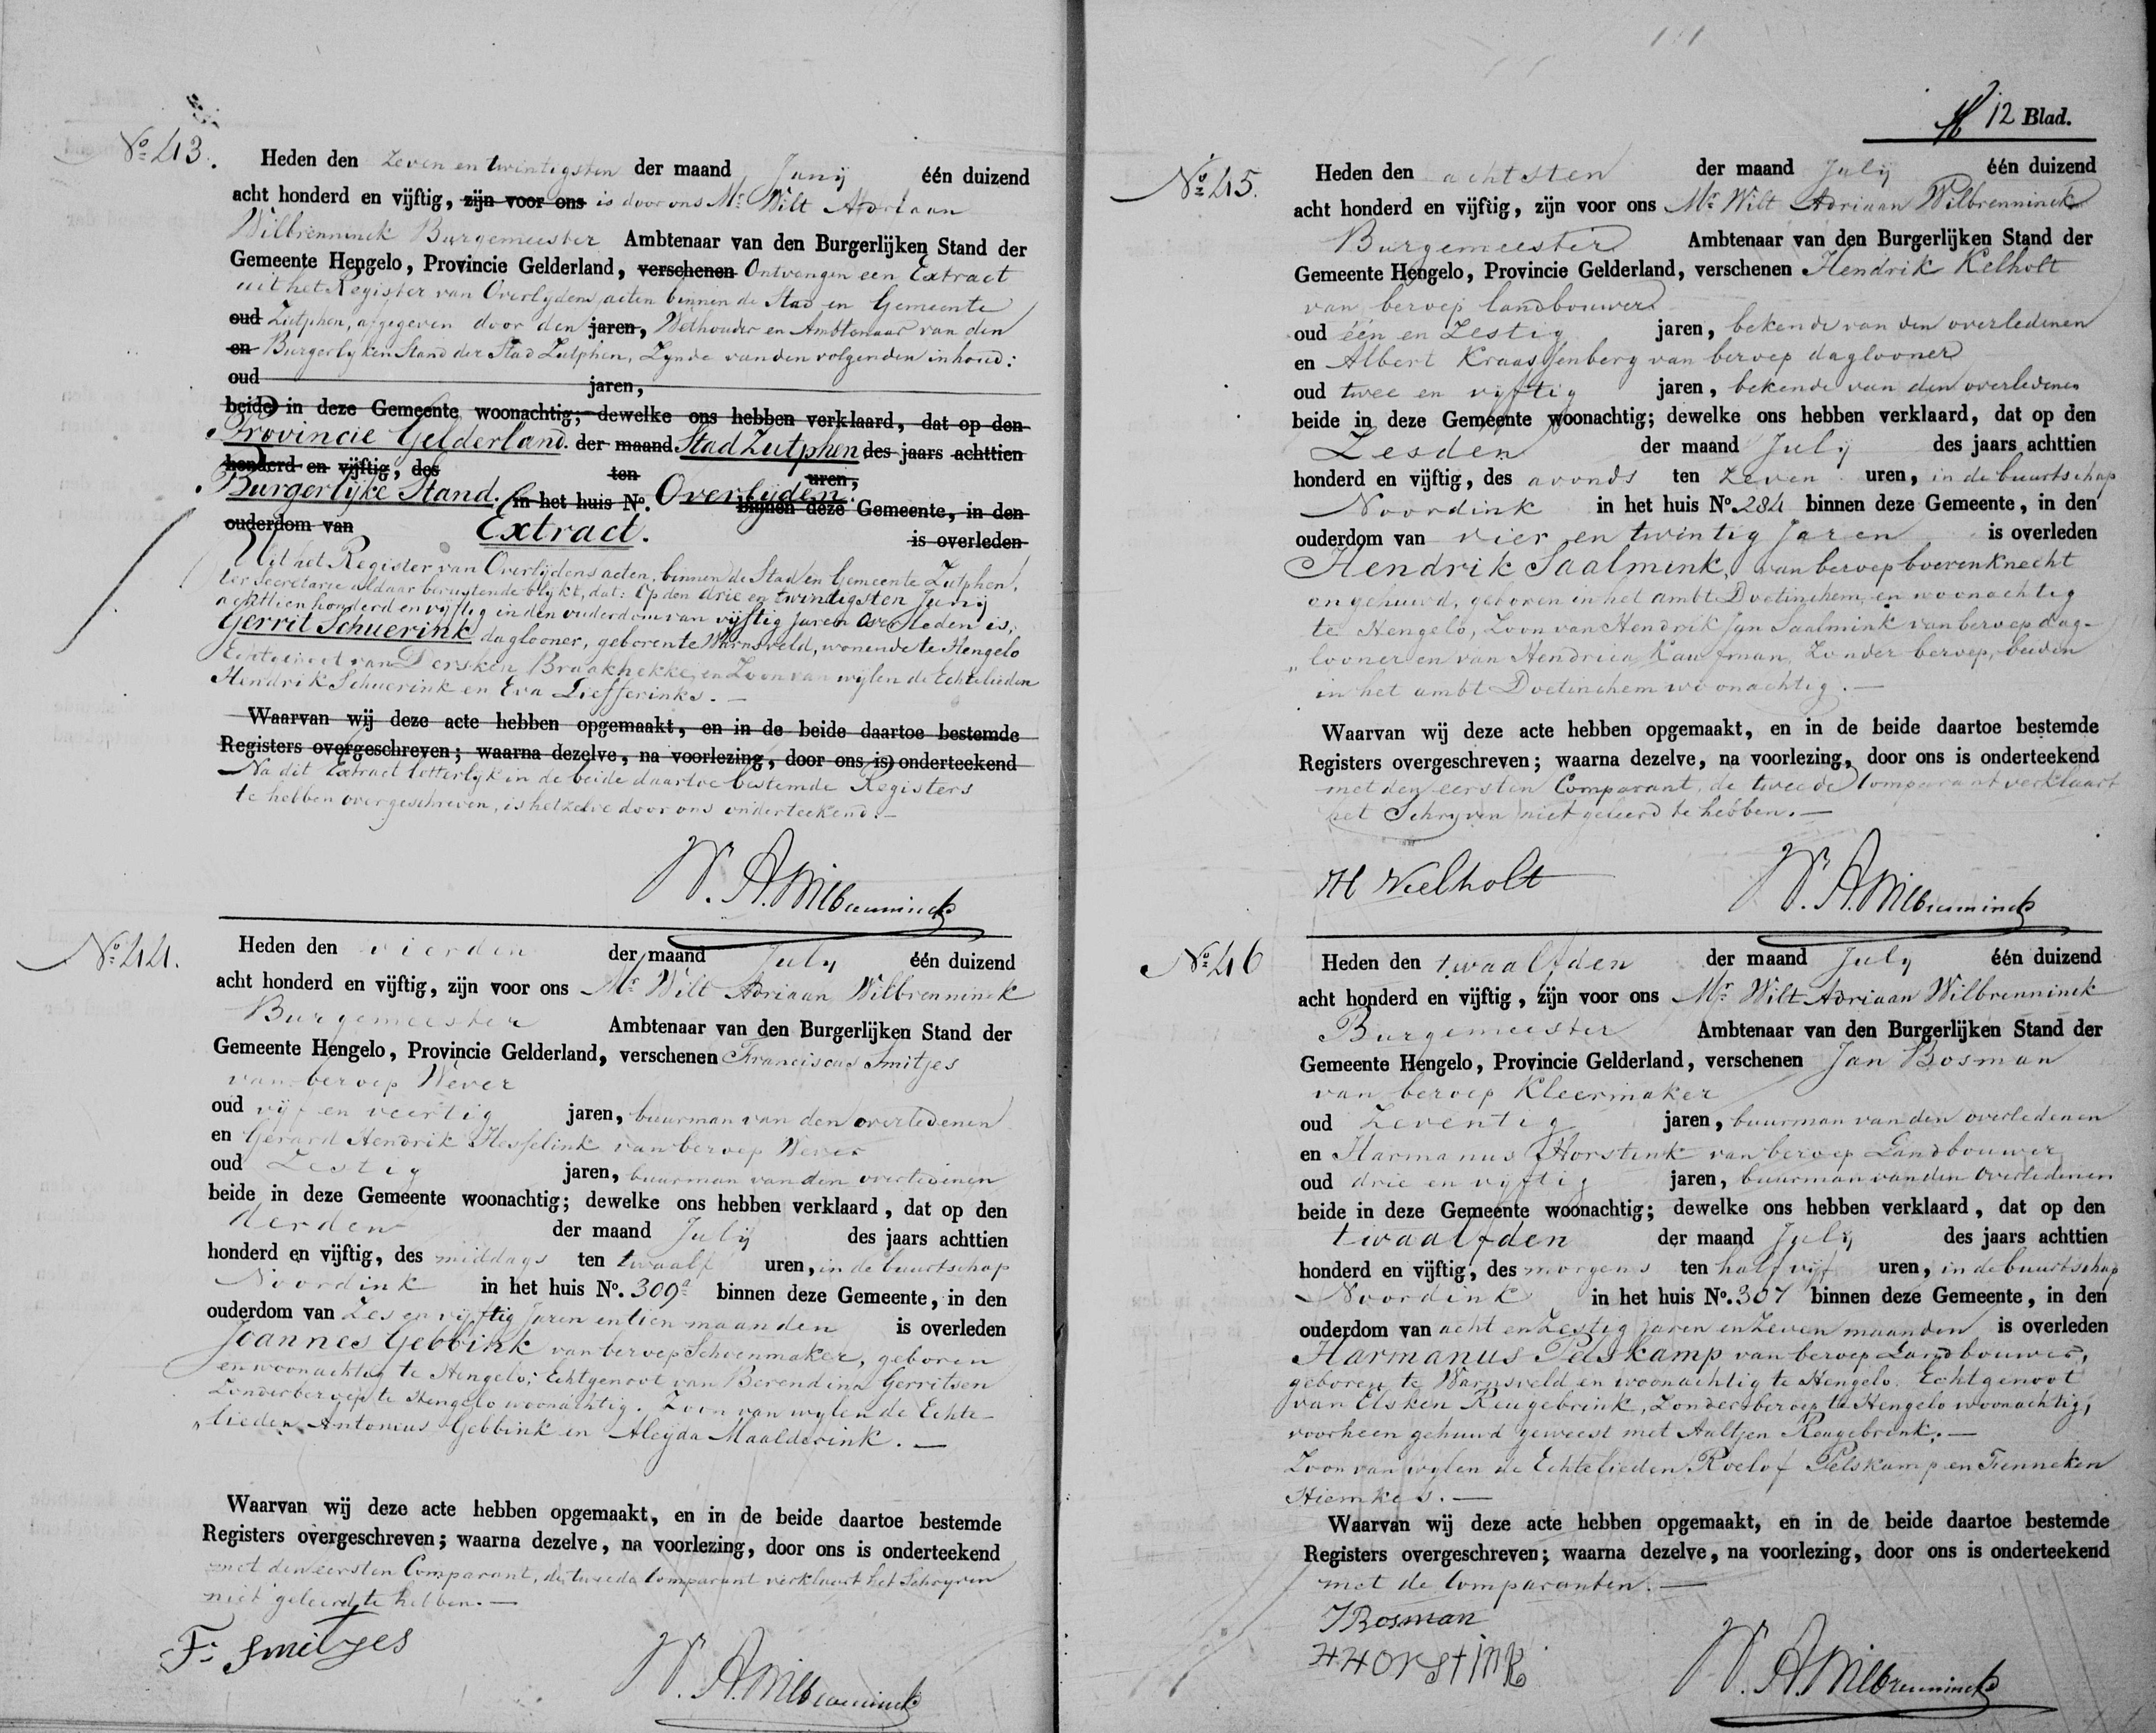 No 43.
Heden den zeven en twintigsten der maand Junij één duizend
acht honderd en vijftig, zijn voor ons is door ons Mr. Wilt Adriaan
Wilbrenninck Burgemeester Ambtenaar van den Burgerlijken Stand der
Gemeente Hengelo, Provincie Gelderland, verschenen Ontvangen een Extract
uit het Register van Overlijdens acten binnen de Stad en Gemeente
oud Zutphen, afgegeven door den jaren, Wethouder en Ambtenaar van den
en Burgerlyken Stand der Stad Zutphen, Zynde van den volgenden inhoud:
oud jaren,
beide in deze Gemeente woonachtig; dewelke ons hebben verklaard, dat op den
Provincie Gelderland. der maand Stad Zutphen des jaars achttien
honderd en vijftig, des ten uren,
Burgerlijke Stand. in het huis No. Overlijden. binnen deze Gemeente, in den
ouderdom van Extract. is overleden
Uit het Register van Overlijdens acten, binnen de Stad en Gemeente Zutphen,
ter Secretarie aldaar berustende blykt, dat: Op den drie en twintigsten Junij
achttien honderd en vyftig in den ouderdom van vijftig jaren Overleden is,
Gerrit Schuerink daglooner, geboren te Warnsveld, wonende te Hengelo
Echtgenoot van Dersken Braakhekke, en Zoon van wijlen de Echtelieden
Hendrik Schuerink en Eva Liefferinks. —
Waarvan wij deze acte hebben opgemaakt, en in de beide daartoe bestemde
Registers overgeschreven; waarna dezelve, na voorlezing, door ons is onderteekend
Na dit Extract letterlyk in de beide daartoe bestemde Registers
te hebben overgeschreven, is hetzelve door ons onderteekend. —
W. A. Wilbrenninck
No 44.
Heden den vierden der maand July één duizend
acht honderd en vijftig, zijn voor ons Mr. Wilt Adriaan Wilbrenninck
Burgemeester Ambtenaar van den Burgerlijken Stand der
Gemeente Hengelo, Provincie Gelderland, verschenen Franciscus Smitjes
van beroep Wever
oud vijf en veertig jaren, buurman van den overledenen
en Gerard Hendrik Hesselink van beroep Wever
oud Zestig jaren, buurman van den overledenen
beide in deze Gemeente woonachtig; dewelke ons hebben verklaard, dat op den
derden der maand Julij des jaars achttien
honderd en vijftig, des middags ten twaalf uren, in de buurtschap
Noordink in het huis No. 309a binnen deze Gemeente, in den
ouderdom van Zes en vijftig Jaren en tien maanden is overleden
Joannes Gebbink van beroep Schoenmaker, geboren
en woonachtig te Hengelo; Echtgenoot van Berendina Gerritsen
Zonder beroep te Hengelo woonachtig. Zoon van wylen de Echte-
" lieden Antonius Gebbink en Aleyda Maalderink. —
Waarvan wij deze acte hebben opgemaakt, en in de beide daartoe bestemde
Registers overgeschreven; waarna dezelve, na voorlezing, door ons is onderteekend
met den eersten Comparant, de tweede Comparant verklaart het Schryven
niet geleerd te hebben. —
F. Smitjes
W. A. Wilbrenninck
12 Blad.
No 45.
Heden den achtsten der maand July één duizend
acht honderd en vijftig, zijn voor ons Mr. Wilt Adriaan Wilbrenninck
Burgemeester Ambtenaar van den Burgerlijken Stand der
Gemeente Hengelo, Provincie Gelderland, verschenen Hendrik Kelholt
van beroep landbouwer
oud één en Zestig jaren, bekende van den overledenen
en Albert Kraassenberg van beroep daglooner
oud twee en vyftig jaren, bekende van den overledenen
beide in deze Gemeente woonachtig; dewelke ons hebben verklaard, dat op den
Zesden der maand July des jaars achttien
honderd en vijftig, des avonds ten Zeven uren, in de buurtschap
Noordink in het huis No. 284 binnen deze Gemeente, in den
ouderdom van vier en twintig Jaren is overleden
Hendrik Saalmink, van beroep boerenknecht
ongehuwd, geboren in het ambt Doetinchem, en woonachtig
te Hengelo, Zoon van Hendrik Jan Saalmink van beroep dag-
" looner en van Hendrica Kaufman, Zonder beroep, beiden
in het ambt Doetinchem woonachtig. —
Waarvan wij deze acte hebben opgemaakt, en in de beide daartoe bestemde
Registers overgeschreven; waarna dezelve, na voorlezing, door ons is onderteekend
met den eersten Comparant, de tweede Comparant verklaart
het Schryven niet geleerd te hebben. —
H Kelholt
W. A. Wilbrenninck
No 46
Heden den twaalfden der maand July één duizend
acht honderd en vijftig, zijn voor ons Mr. Wilt Adriaan Wilbrenninck
Burgemeester Ambtenaar van den Burgerlijken Stand der
Gemeente Hengelo, Provincie Gelderland, verschenen Jan Bosman
van beroep Kleermaker
oud Zeventig jaren, buurman van den overledenen
en Harmanus Horstink van beroep Landbouwer
oud drie en vyftig jaren, buurman van den Overledenen
beide in deze Gemeente woonachtig; dewelke ons hebben verklaard, dat op den
twaalfden der maand July des jaars achttien
honderd en vijftig, des morgens ten half vijf uren, in de buurtschap
Noordink in het huis No. 307 binnen deze Gemeente, in den
ouderdom van acht en Zestig Jaren en Zeven maanden is overleden
Harmanus Pelskamp van beroep Landbouwer,
geboren te Warnsveld en woonachtig te Hengelo. Echtgenoot
van Elsken Reugebrink, Zonder beroep te Hengelo woonachtig,
voorheen gehuwd geweest met Aaltjen Reugebrink. —
Zoon van wylen de Echtelieden Roelof Pelskamp en Tenneken
Hiemkes. —
Waarvan wij deze acte hebben opgemaakt, en in de beide daartoe bestemde
Registers overgeschreven; waarna dezelve, na voorlezing, door ons is onderteekend
met de Comparanten. —
J Bosman
H HorstinK
W. A. Wilbrenninck